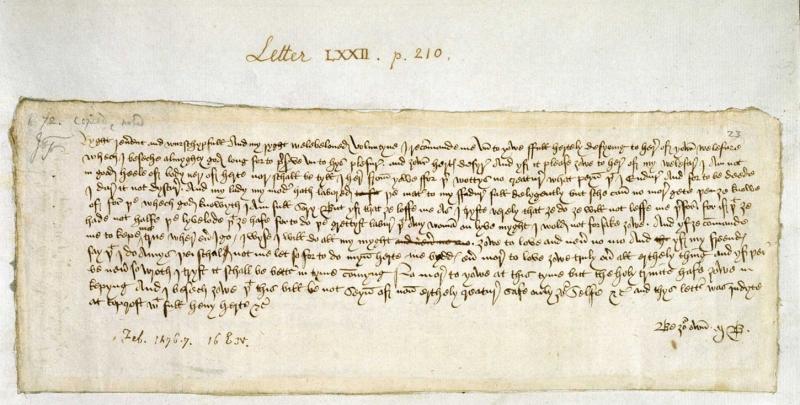 Letter LXXII. p. 210.
72. copied,
23
Ryght reverent and wurschypfull and my ryght welebeloved Voluntyne I recomande me vn to yowe full hertely desyring to here of yowr welefare
whech I beseche almyghty god long for to preserve vn to hys plesure and yowr hertys desyre And yf it please yowe to here of my welefare I am not
in good heele of body ner of herte nor schall be tyll I here from yowe For ther wottys no creature what peyn that I endure And for to be deede
I dare it not dyscure And my lady my moder hath labored the mater to my fadure full delygently but sche can no more gete then ye knowe
of for the whech god knowyth I am full sory But yf that ye loffe me as I tryste verely that ye do ye will not leffe me therfor for if that ye
hade not halfe the lyvelode that ye hafe for to do the grettyst labure that any woman on lyve myght I wold not forsake yowe And yf ye comande
me to kepe me true wherever I go I wyse I will do all my myght yowe to love and never no mo And yf my freendys
say that I do amys thei schal not me let so for to do myn herte me byddys ever more to love yowe truly over all erthely thing And yf thei
be never so wroth I tryst it schall be bettur in tyme comyng No more to yowe at this tyme but the holy trinite hafe yowe in
kepyng And I besech yowe that this bill be not seyn of non erthely creature safe only your selfe &c And thys lettur was indyte
at Topcroft wt full hevy herte &c
Be your own M B
Feb. 1476.7. 16 E. IV.